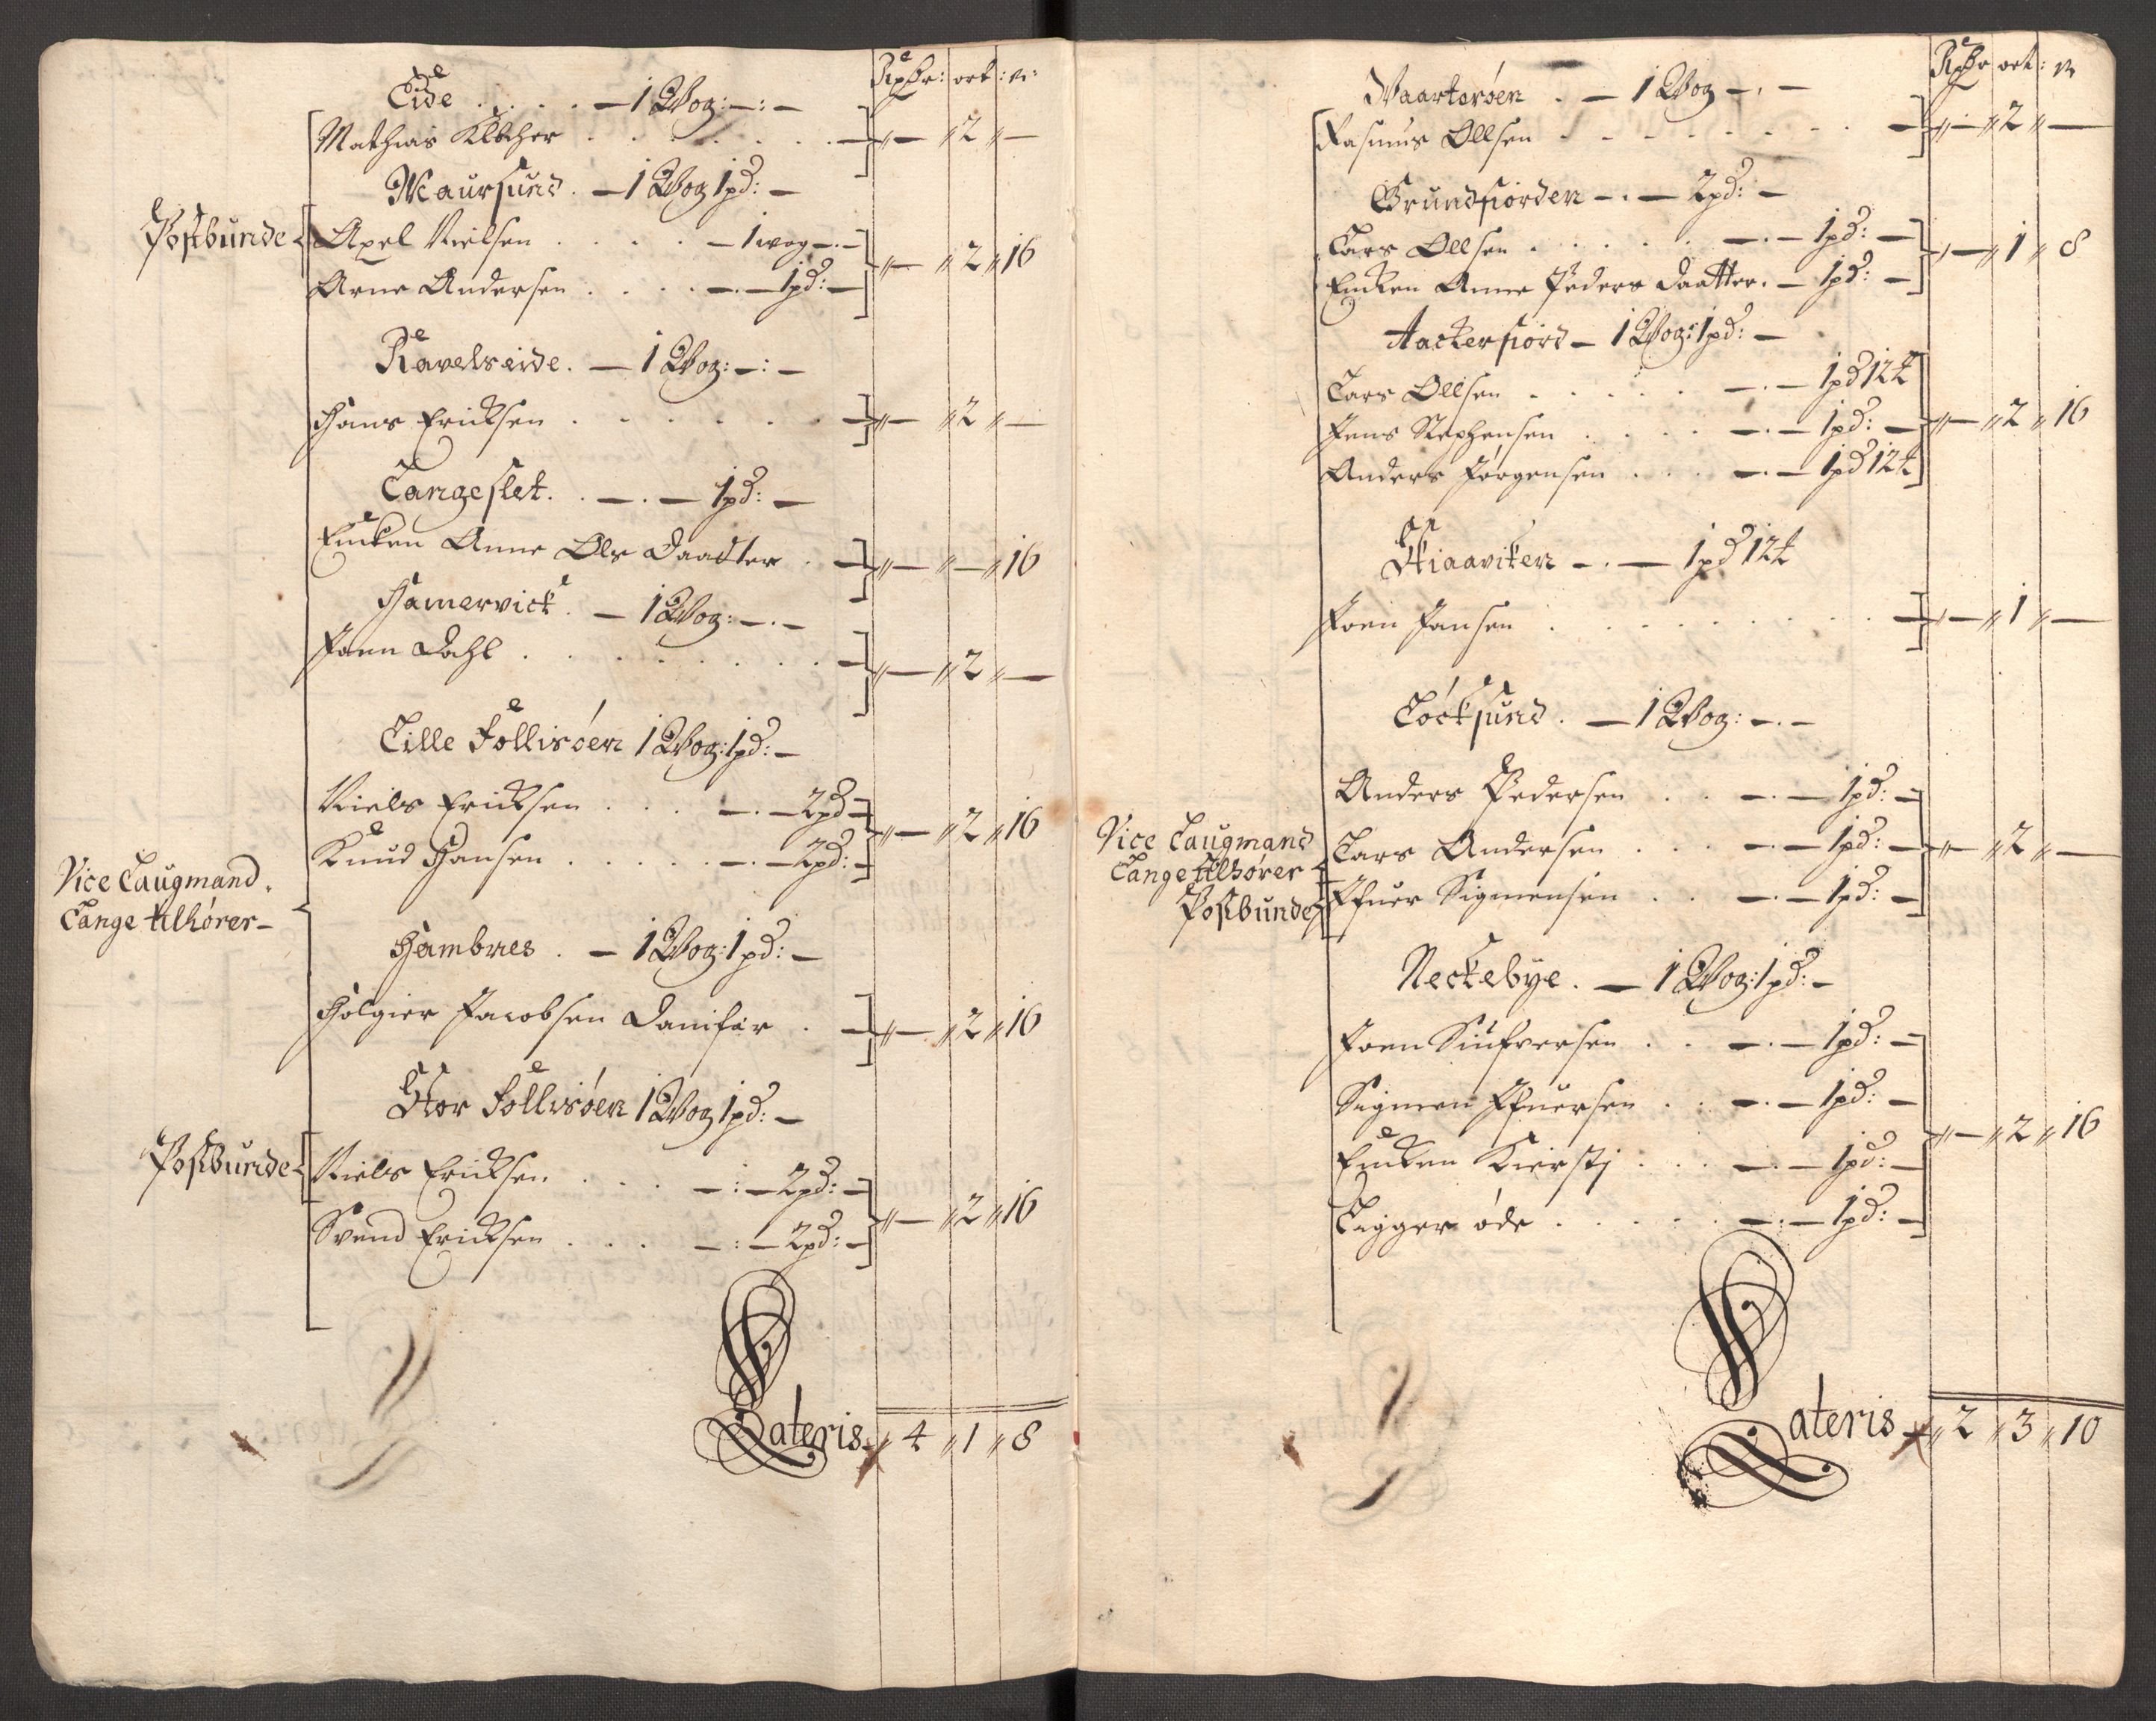 Rixdr: ort: ß:
Eide . . . . — 1 Wog: — : —
Mathias . . . . . . — „ — „ 2 „ —
Maursund . — 1 Wog 1 pd: —
Postbunde
Axel Nielsen . . . . — 1 wog — . —
„ — „ 2 „ 16
Arne Andersen . . . . — . — 1 pd: —
Ravelseide . — 1 Wog: — : —
Hans Ericksen . . . . . . — „ — „ 2 „ —
Langeslet . . — . — 1 pd: —
Encken Anne Ols Daadter . — „ — „ — „ 16
Hamervick . — 1 Wog: — . —
Joen Dahl . . . . . . . — „ — „ 2 „ —
Lille Follisöen 1 Wog: 1 pd: —
Niels Ericksen . . . — . — 2 pd —
„ — „ 2 „ 16
Knud Hansen . . . . . — . — 2 pd: —
Vice Laugmand
Lange tilhører —
Hambnes . — 1 Wog: 1 pd: —
Holgier Jacobsen Danifær . — „ — „ 2 „ 16
Stor Follisöen 1 Wog 1 pd: —
Postbunde
Niels Ericksen . . . — : — 2 pd: —
„ — „ 2 „ 16
Svend Ericksen . . . — : — 2 pd: —
Lateris — „ 4 „ 1 „ 8
Rixdr ort: ß
Vaarterøen . — 1 Wog — . —
Rasmus Ollsen . . . . . . . — „ — „ 2 „ —
Grundfiorden — . — 2 pd: —
Lars Ollsen . . . . . — . — 1 pd: —
„ — „ 1 „ 8
Encken Anne Peders Daatter . — 1 pd: —
Aackerfiord — 1 Wog: 1 pd: —
Lars Ollsen . . . . . — . — 1 pd 12 ℔
Jens Stephensen . . . . — . — 1 pd: — „ — „ 2 „ 16
Anders Jørgensen . . . — . — 1 pd 12 ℔
Skiaaviken — . — 1 pd 12 ℔
Joen Jansen . . . . . . . . — „ — „ 1 „ —
Löcksund . — 1 Wog: — . —
Anders Pedersen . . — . — 1 pd: —
Vice Laugmand
Lange tilhører
Lars Andersen . . . — . — 1 pd: — „ — „ 2 „ —
Postbunde
Ifuer Sigmensen . . — . — 1 pd: —
Neckebye . — 1 Wog: 1 pd: —
Joen Siufversen . . — . — 1 pd: —
Sigmen Ifuersen . . — . — 1 pd: —
„ — „ 2 „ 16
Encken Kiersti . . . — . — 1 pd: —
Ligger øde . . . . . — . — 1 pd: —
Lateris — „ 2 „ 3 „ 10